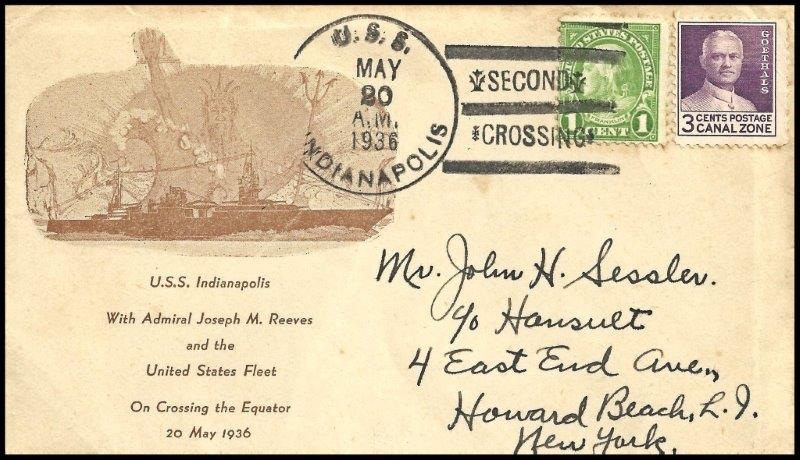 U.S.S.
MAY
20
A.M.
1936
INDIANAPOLIS
SECOND
CROSSING
UNITED STATES POSTAGE
FRANKLIN
1 CENT 1
GOETHALS
3 CENTS POSTAGE
CANAL ZONE
U.S.S. Indianapolis
With Admiral Joseph M. Reeves
and the
United States Fleet
On Crossing the Equator
20 May 1936
Mr. John H. Sessler.
c/o Hansult
4 East End Ave.,
Howard Beach, L.I.
New York.